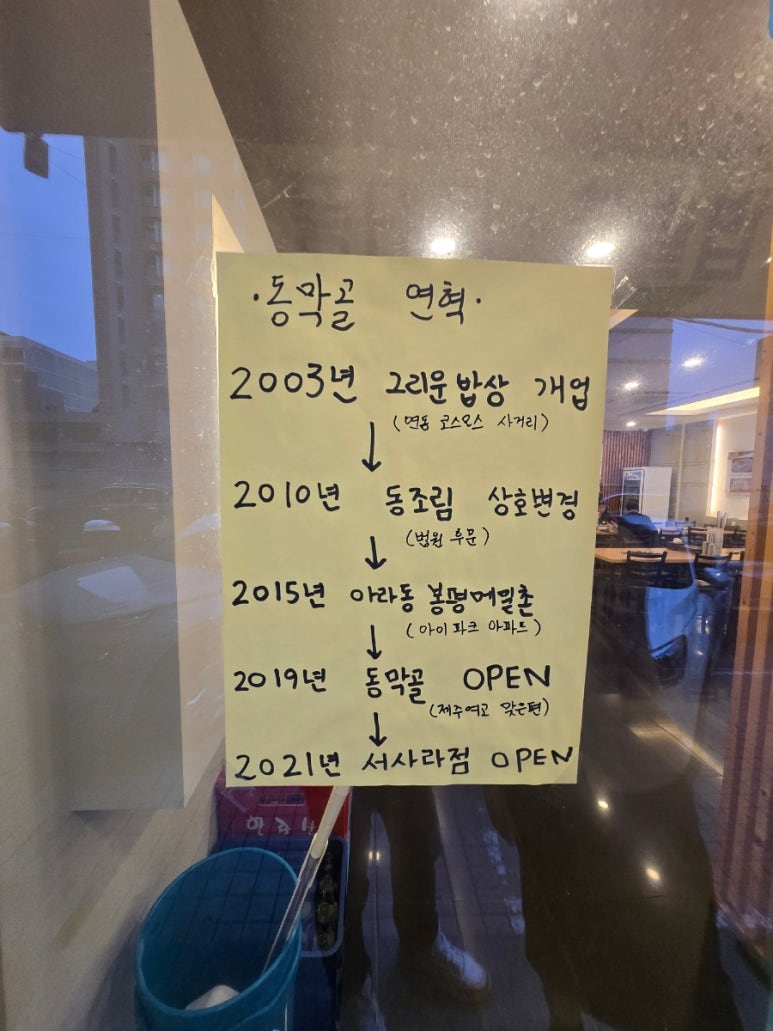 ·동막골 연혁·
2003년 그리운 밥상 개업
(연동 코스모스 사거리)
↓
2010년 동조림 상호변경
(법원 후문)
↓
2015년 아라동 봉평메밀촌
(아이파크 아파트)
↓
2019년 동막골 OPEN
(제주여고 맞은편)
↓
2021년 서사라점 OPEN